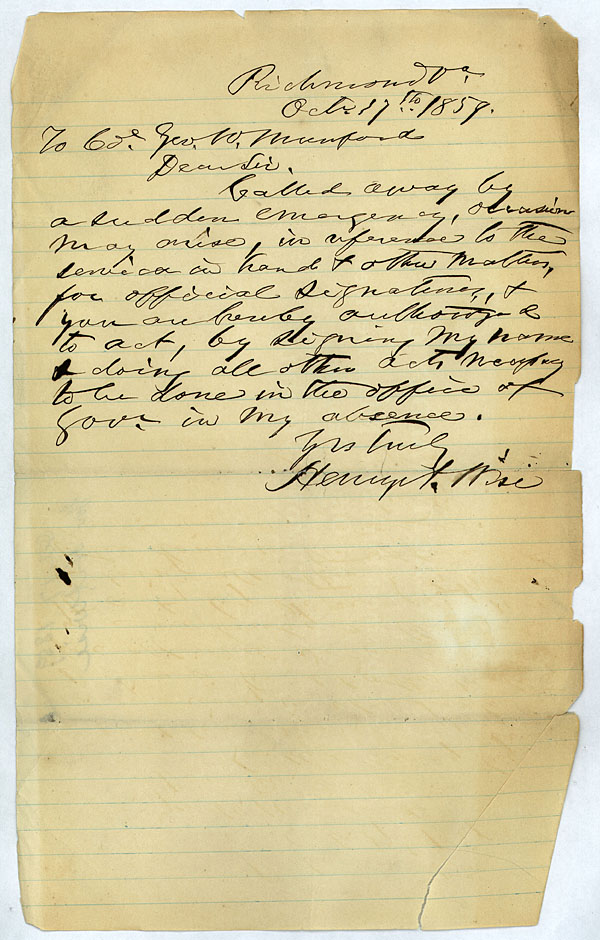 Richmond Va
Octr 17th 1859.
To Col. Geo. W. Munford
Dear Sir.
Called away by
a sudden emergency, occasion
may arise, in reference to the
service in hand & other matters,
for official signatures, &
you are hereby authorized
to act, by signing my name
& doing all other acts necessary
to be done in the office of
Govr in my absence.
Yrs truly
Henry A. Wise